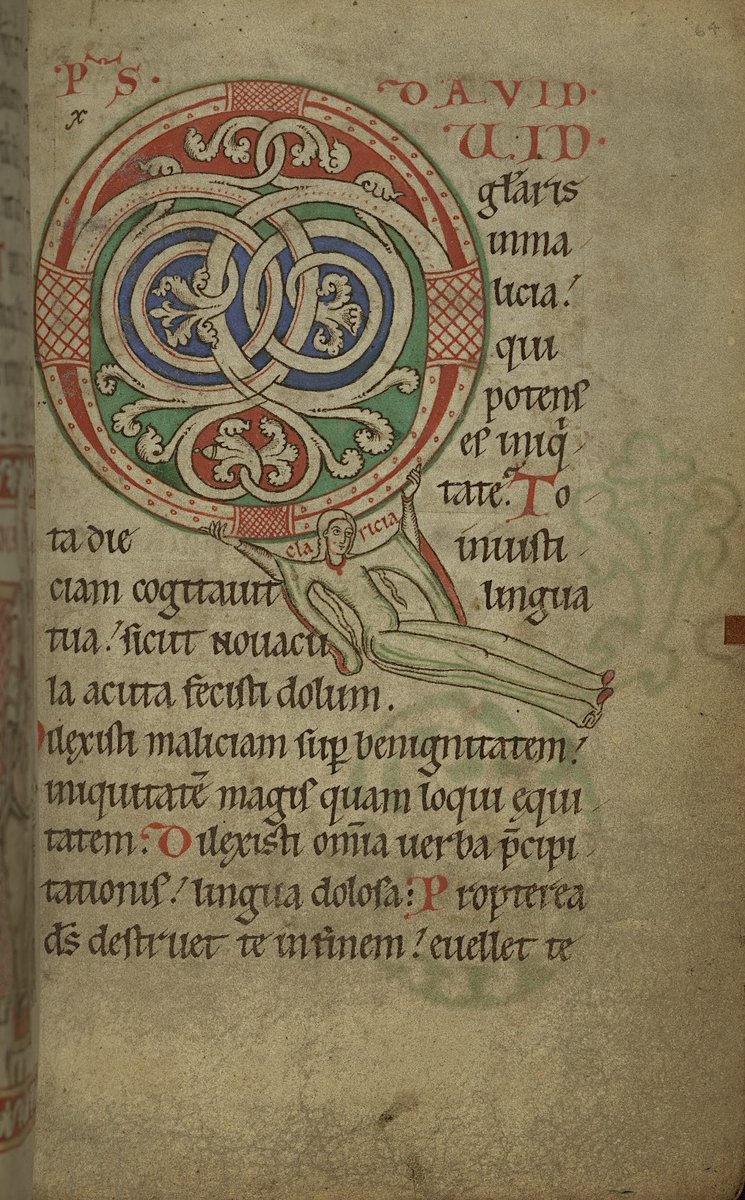 64
PS. DAVID.
x UID.
głaris
inma
licia!
qui
potens
es iniq̇
tate. To
ta die iniusti
claricia
ciam cogitauit lingua
tua! sicut nouacu
la acuta fecisti dolum.
Dilexisti maliciam sup benignitatem!
iniquitatē magis quam loqui ęqui
tatem. Dilexisti om̄ia uerba p̄cipi
tationis! lingua dolosa: Propterea
ds̄ destruet te in finem! euellet te